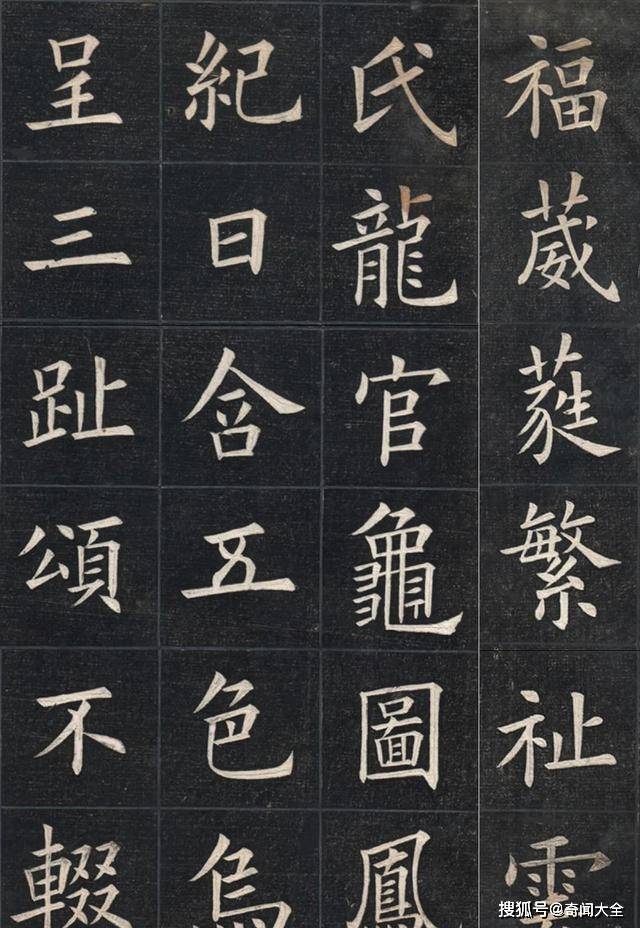 福葳蕤繁祉雲
氏龍官龜圖鳳
紀日含五色烏
呈三趾頌不輟
搜狐号@奇闻大全